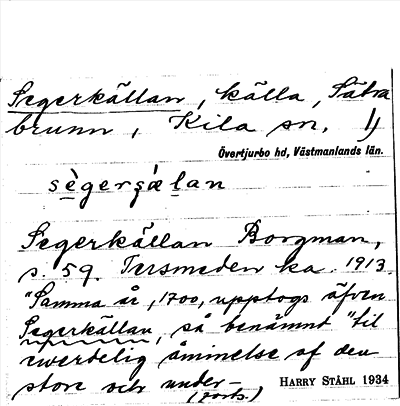 Segerkällan, källa, Sätra
brunn, Kila sn. 1)
Övertjurbo hd, Västmanlands län.
sègerʂǽḷan
Segerkällan Borgman,
s. 59. Tersmeden ka. 1913.
"Samma år, 1700, upptogs äfven
Segerkällan, så benämnt "til
ewerdelig åminelse af den
store och under-
(forts.)
HARRY STÅHL 1934